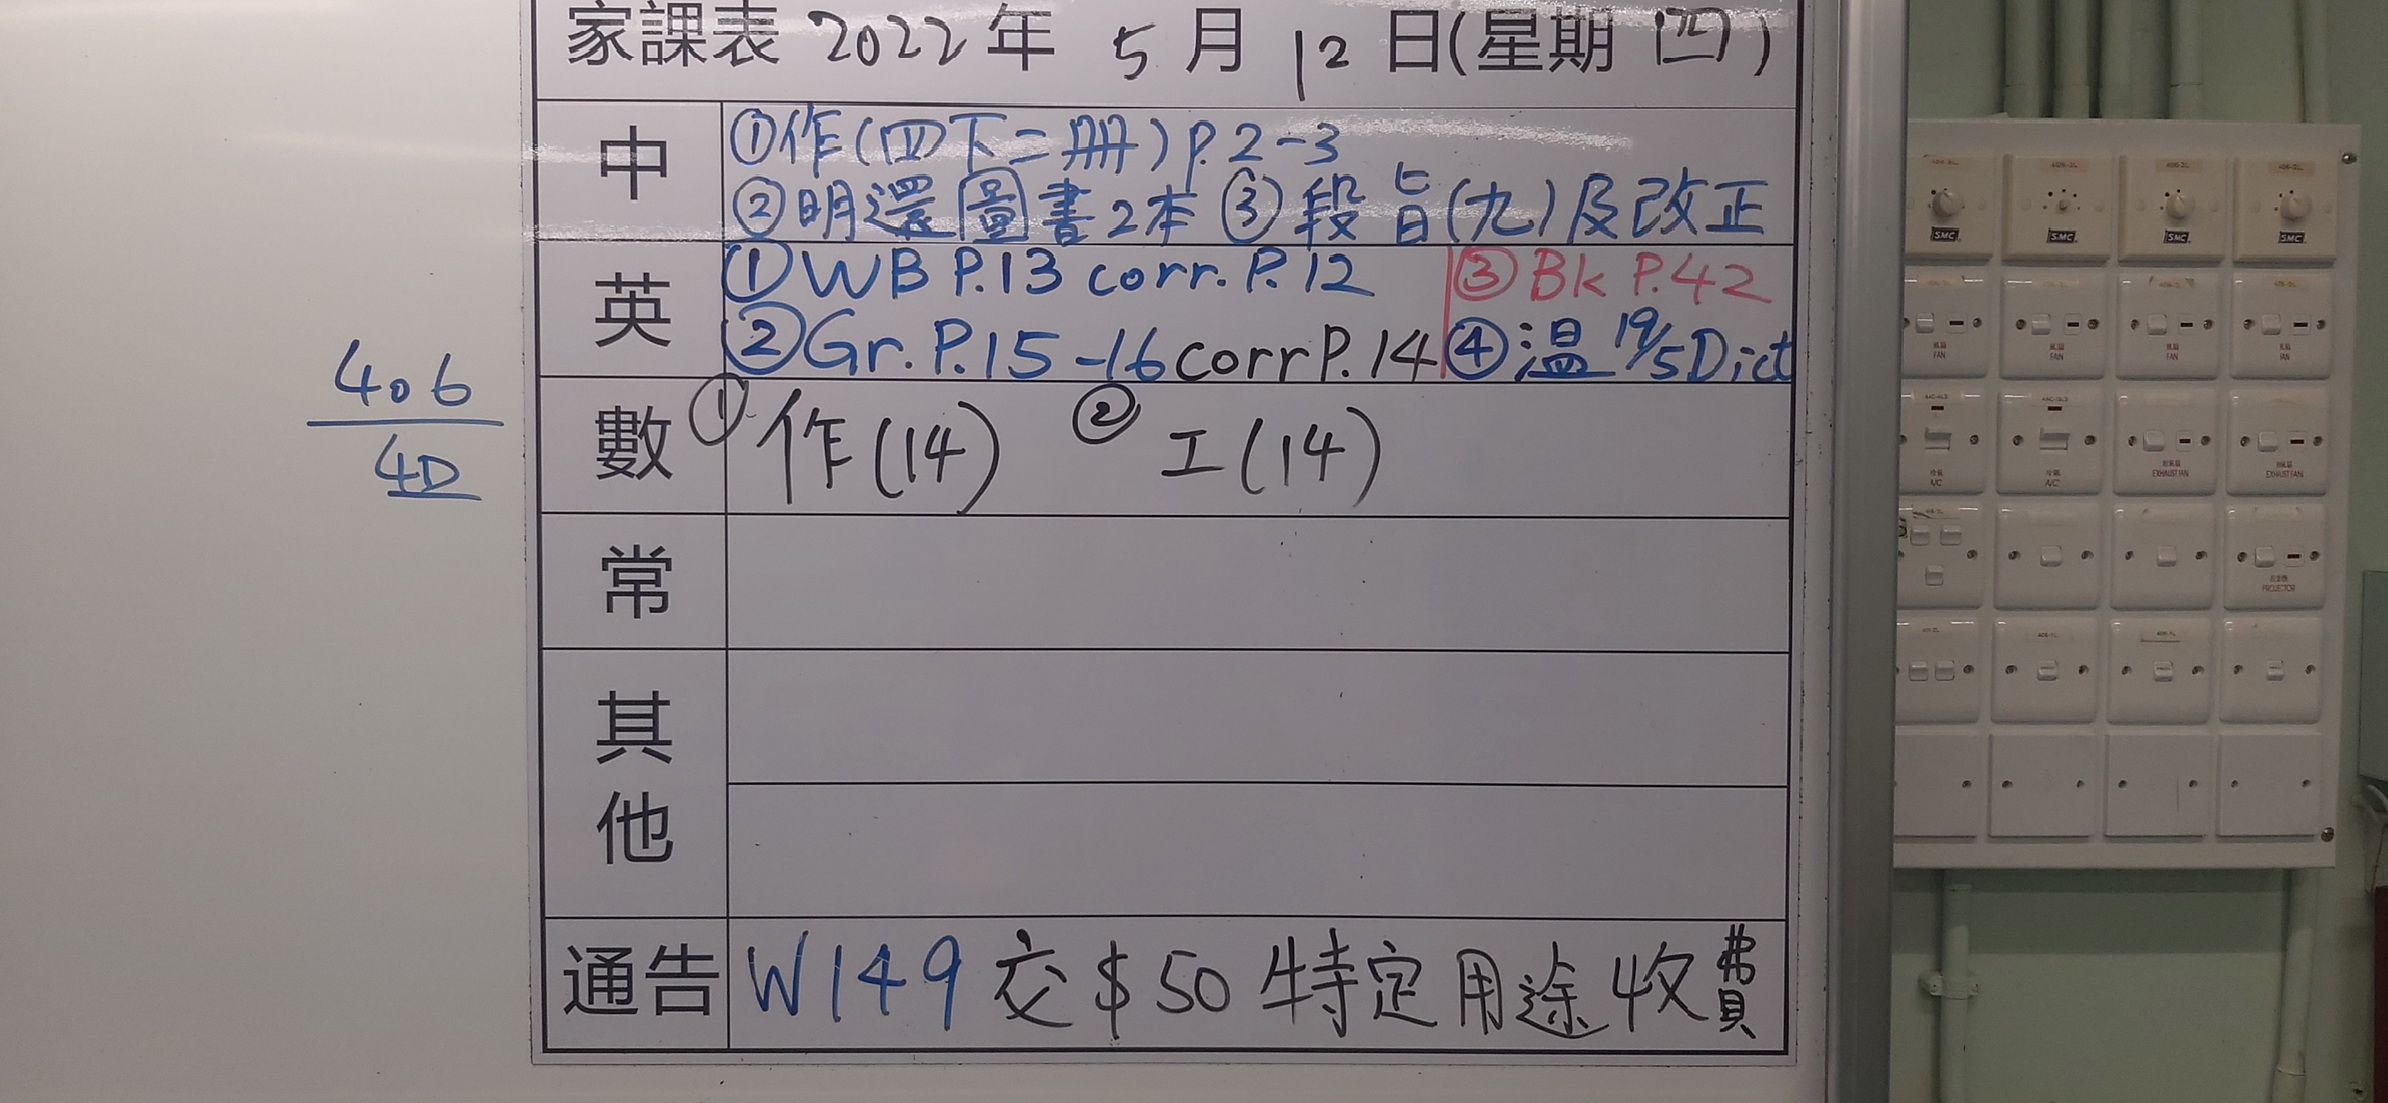 家課表 2022 年 5 月 12 日(星期 四)
中
①作(四下二冊)P.2-3
②明還圖書2本 ③段旨(九)及改正
英
①WB P.13 corr.P.12 ③Bk P.42
②Gr.P.15-16 corr P.14 ④温 19/5 Dict
數
①作(14) ②工(14)
常
其他
通告
W149 交$50 特定用途收費
406
4D
SMC
SMC
SMC
SMC
FAN
FAN
FAN
FAN
A/C
A/C
EXHAUST FAN
EXHAUST FAN
PROJECTOR